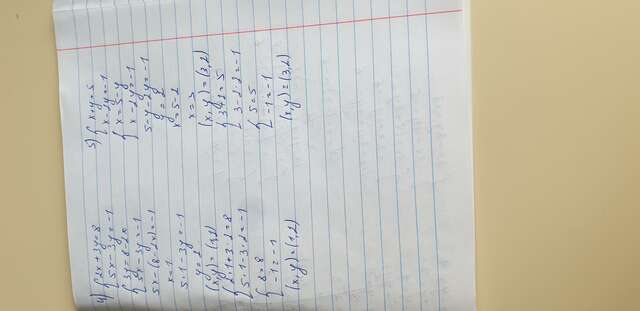 4) { 2x + 3y = 8
5x - 3y = -1
{ 3y = 8 - 2x
5x - 3y = -1
5x - (8 - 2x) = -1
x = 1
5·1 - 3y = -1
y = 2
(x, y) = (1, 2)
{ 2·1 + 3·2 = 8
5·1 - 3·2 = -1
{ 8 = 8
-1 = -1
(x, y) = (1, 2)
5) { x + y = 5
x - 2y = -1
{ x = 5 - y
x - 2y = -1
5 - y - 2y = -1
y = 2
x = 5 - 2
x = 3
(x, y) = (3, 2)
{ 3 + 2 = 5
3 - 2·2 = -1
{ 5 = 5
-1 = -1
(x, y) = (3, 2)